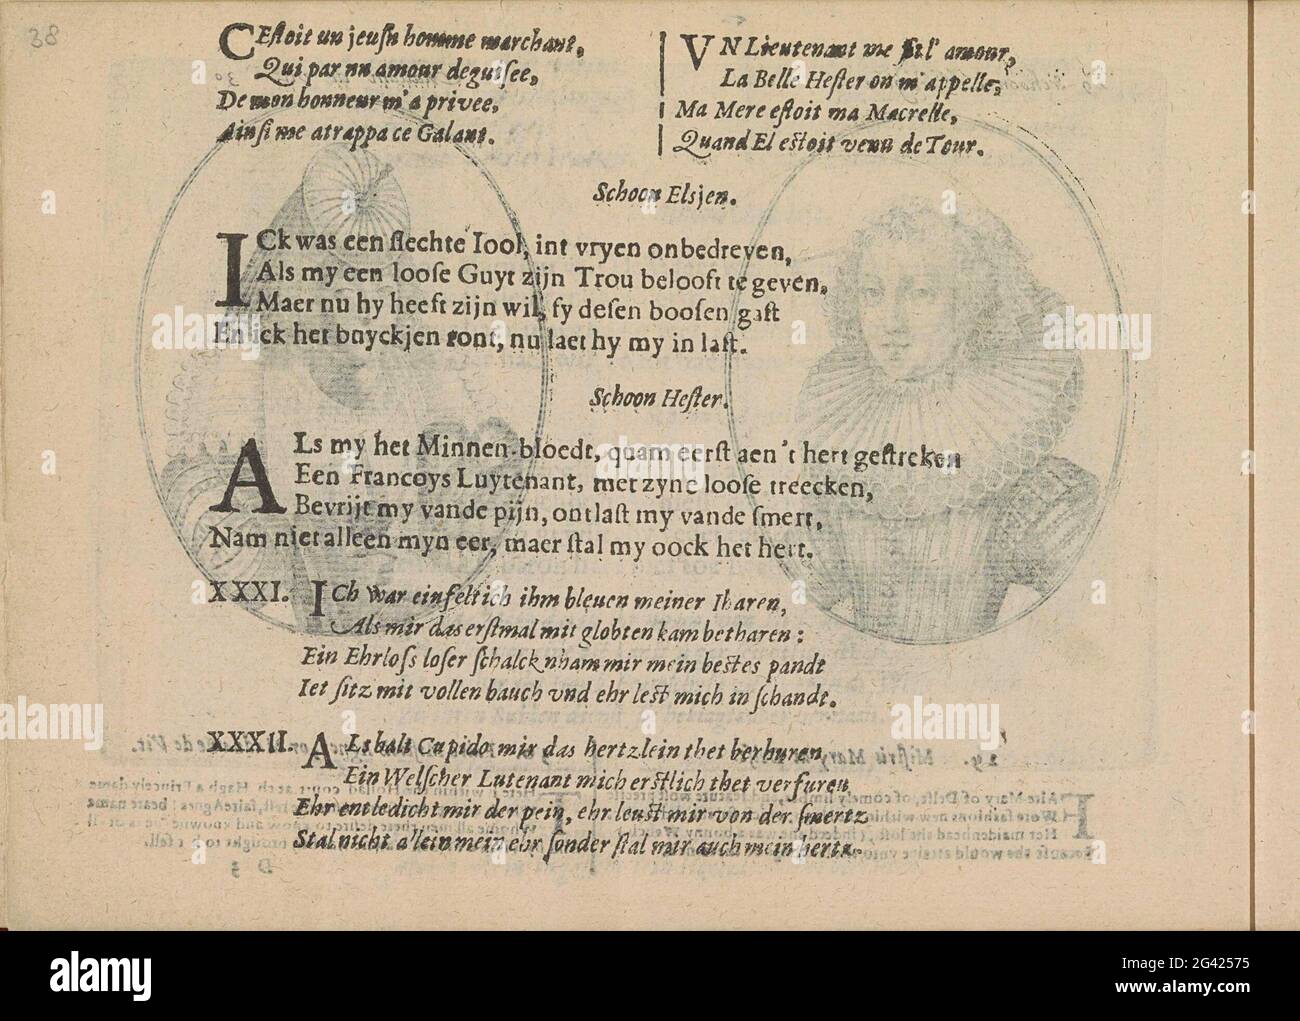 38
CEstoit un jeusn homme marchant,
Qui par nu amour deguisee,
De mon honneur m'a privee,
Ainsi me atrappa ce Galant.
VN Lieutenant me fit l' amour,
La Belle Hester on m'appelle,
Ma Mere estoit ma Macrelle,
Quand El estoit venu de Tour.
Schoon Elsjen.
ICk was een slechte Iool, int vryen onbedreven,
Als my een loose Guyt zijn Trou belooft te geven,
Maer nu hy heeft zijn wil, sy desen boosen gast
En ick het buyckjen ront, nu laet hy my in last.
Schoon Hester.
ALs my het Minnen-bloedt, quam eerst aen 't hert gestreken
Een Francoys Luytenant, met zyne loose treecken,
Bevrijt my vande pijn, ontlast my vande smert,
Nam niet alleen myn eer, maer stal my oock het hert.
XXXI. ICh war einfeltich ihm bleuen meiner Iharen,
Als mir das erstmal mit globten kam betharen:
Ein Ehrloss loser schalck nham mir mein bestes pandt
Iet sitz mit vollen bauch vnd ehr lest mich in schandt.
XXXII. ALsbalt Cupido mir das hertzlein thet berhuren,
Ein Welscher Lutenant mich erstlich thet verfuren
Ehr entledicht mir der pein, ehr leust mir von der smertz
Stal nicht allein mein ehr sonder stal mir auch mein hertz.
alamy
Image ID: 2G42575
www.alamy.com